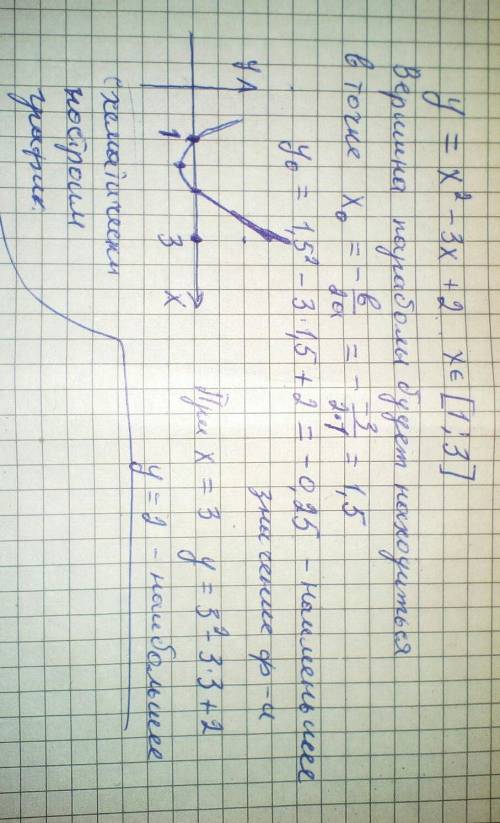 y = x² - 3x + 2. x ∈ [1; 3]
Вершина параболы будет находиться
в точке x₀ = - в/2а = - -3/2·1 = 1,5
y₀ = 1,5² - 3·1,5 + 2 = -0,25 - наименьшее
значение ф-и
y
1 3 X
При x = 3 y = 3² - 3·3 + 2
y = 2 - наибольшее
Схематически
построим
график.